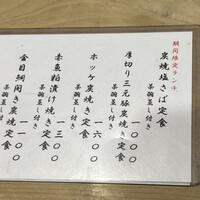 期間限定ランチ
炭焼塩さば定食
茶碗蒸し付き
一〇〇〇
厚切り三元豚炭焼き定食
茶碗蒸し付き
一六〇〇
ホッケ炭焼き定食
茶碗蒸し付き
一三〇〇
赤魚粕漬け焼き定食
茶碗蒸し付き
一一〇〇
金目鯛開き炭焼き定食
茶碗蒸し付き